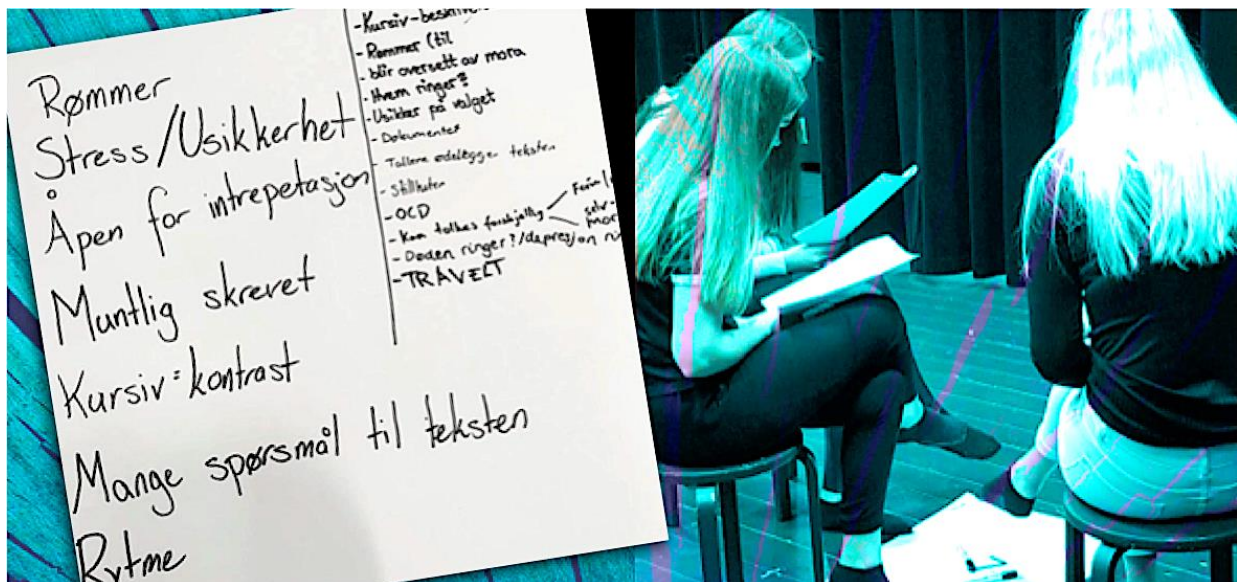 Rømmer
Stress/Usikkerhet
Åpen for intrepetasjon
Muntlig skrevet
Kursiv=kontrast
Mange spørsmål til teksten
Rytme
-Kursiv-
-Rømmer (til
-blir oversett av mora
-Hvem ringer?
-Usikker på valget
-Dokumenter
-Tallene ødelegger teksten
-Stillheten
-OCD
-Kan tolkes forskjellig
-Døden ringer?/depresjon
-TRAVELT